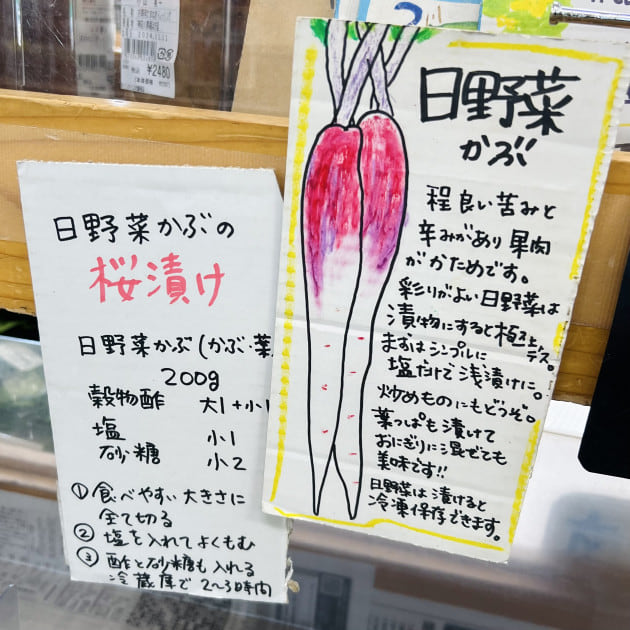 ¥2480
2
日野菜
かぶ
程良い苦みと
辛みがあり果肉
がかためです。
彩りがよい日野菜は
漬物にすると極上デス。
まずはシンプルに
塩だけで浅漬けに。
炒めものにもどうぞ。
葉っぱも漬けて
おにぎりに混ぜても
美味です!!
日野菜は漬けると
冷凍保存できます。
日野菜かぶの
桜漬け
日野菜かぶ(かぶ・葉
200g
穀物酢 大1+小1
塩 小1
砂糖 小2
①食べやすい大きさに
全て切る
②塩を入れてよくもむ
③酢と砂糖も入れる
冷蔵庫で2~3時間